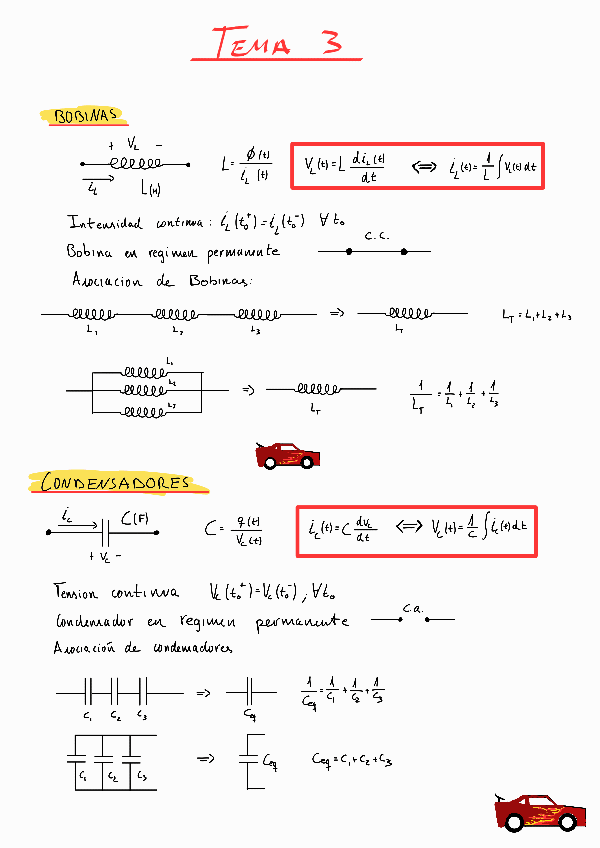 TEMA 3
BOBINAS
+ VL −
iL L(H)
L = ϕ(t) / iL(t)
VL(t) = L diL(t)/dt ⟺ iL(t) = 1/L ∫ VL(t) dt
Intensidad continua: iL(t0+) = iL(t0−) ∀ t0
C.C.
Bobina en regimen permanente
Asociacion de Bobinas:
L1 L2 L3 ⇒ LT LT = L1 + L2 + L3
L1
L2
L3
⇒ LT 1/LT = 1/L1 + 1/L2 + 1/L3
CONDENSADORES
iC C(F)
+ VC −
C = q(t) / VC(t)
iC(t) = C dVC/dt ⟺ VC(t) = 1/C ∫ iC(t) dt
Tension continua VC(t0+) = VC(t0−), ∀ t0
C.a.
Condensador en regimen permanente
Asociación de condensadores
C1 C2 C3 ⇒ Ceq 1/Ceq = 1/C1 + 1/C2 + 1/C3
C1 C2 C3 ⇒ Ceq Ceq = C1 + C2 + C3